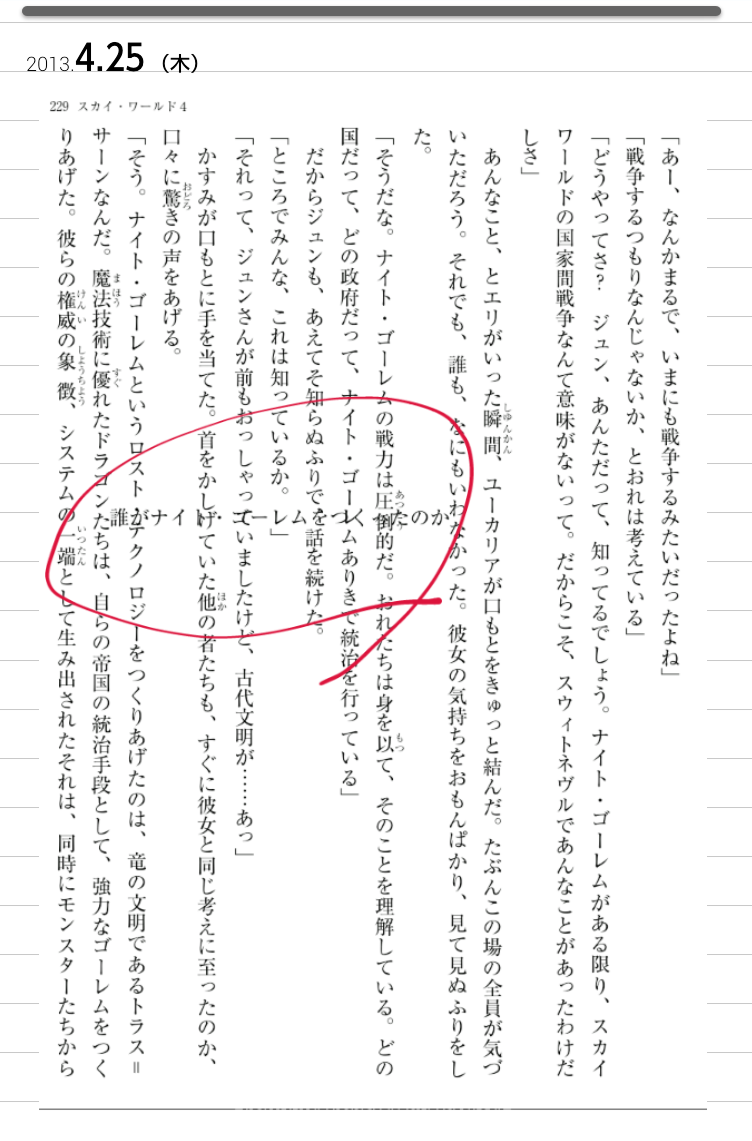 2013.4.25（木）
229 スカイ・ワールド4
「あー、なんかまるで、いまにも戦争するみたいだったよね」
「戦争するつもりなんじゃないか、とおれは考えている」
「どうやってさ？　ジュン、あんただって、知ってるでしょう。ナイト・ゴーレムがある限り、スカイ
ワールドの国家間戦争なんて意味がないって。だからこそ、スウィトネヴルであんなことがあったわけだ
しさ」
あんなこと、とエリがいった瞬間、ユーカリアが口もとをきゅっと結んだ。たぶんこの場の全員が気づ
いただろう。それでも、誰も、なにもいわなかった。彼女の気持ちをおもんぱかり、見て見ぬふりをし
た。
「そうだな。ナイト・ゴーレムの戦力は圧倒的だ。おれたちは身を以て、そのことを理解している。どの
国だって、どの政府だって、ナイト・ゴーレムありきで統治を行っている」
だからジュンも、あえてそ知らぬふりで話を続けた。
「ところでみんな、これは知っているか。」
誰がナイト・ゴーレムをつくったのか
「それって、ジュンさんが前もおっしゃっていましたけど、古代文明が……あっ」
かすみが口もとに手を当てた。首をかしげていた他の者たちも、すぐに彼女と同じ考えに至ったのか、
口々に驚きの声をあげる。
「そう。ナイト・ゴーレムというロスト・テクノロジーをつくりあげたのは、竜の文明であるトラス＝
サーンなんだ。魔法技術に優れたドラゴンたちは、自らの帝国の統治手段として、強力なゴーレムをつく
りあげた。彼らの権威の象徴、システムの一端として生み出されたそれは、同時にモンスターたちから